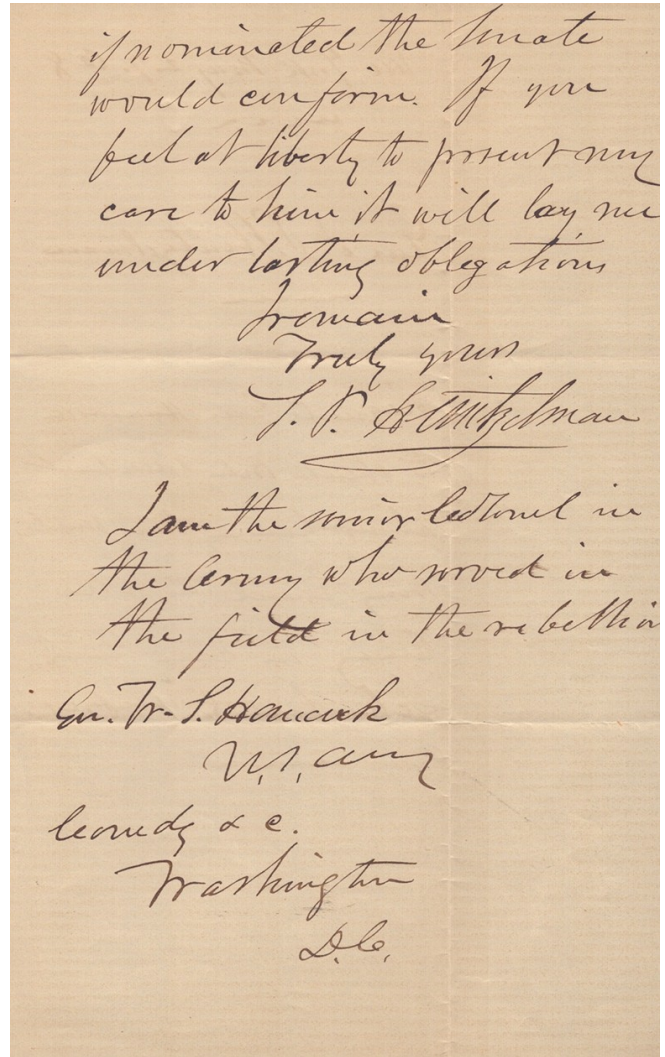 if nominated the Senate
would confirm. If you
feel at liberty to present my
case to him it will lay me
under lasting obligations
I remain
Truly yours
S. P. Heintzelman
I am the senior Colonel in
the Army who served in
the field in the rebellion
Gen. W. S. Hancock
U.S. Army
Comdg & c.
Washington
D.C.